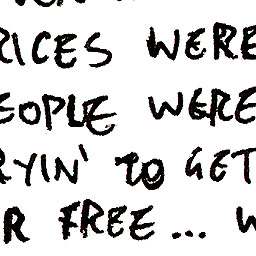 RICES WERE
EOPLE WERE
RYIN' TO GET
R FREE... W